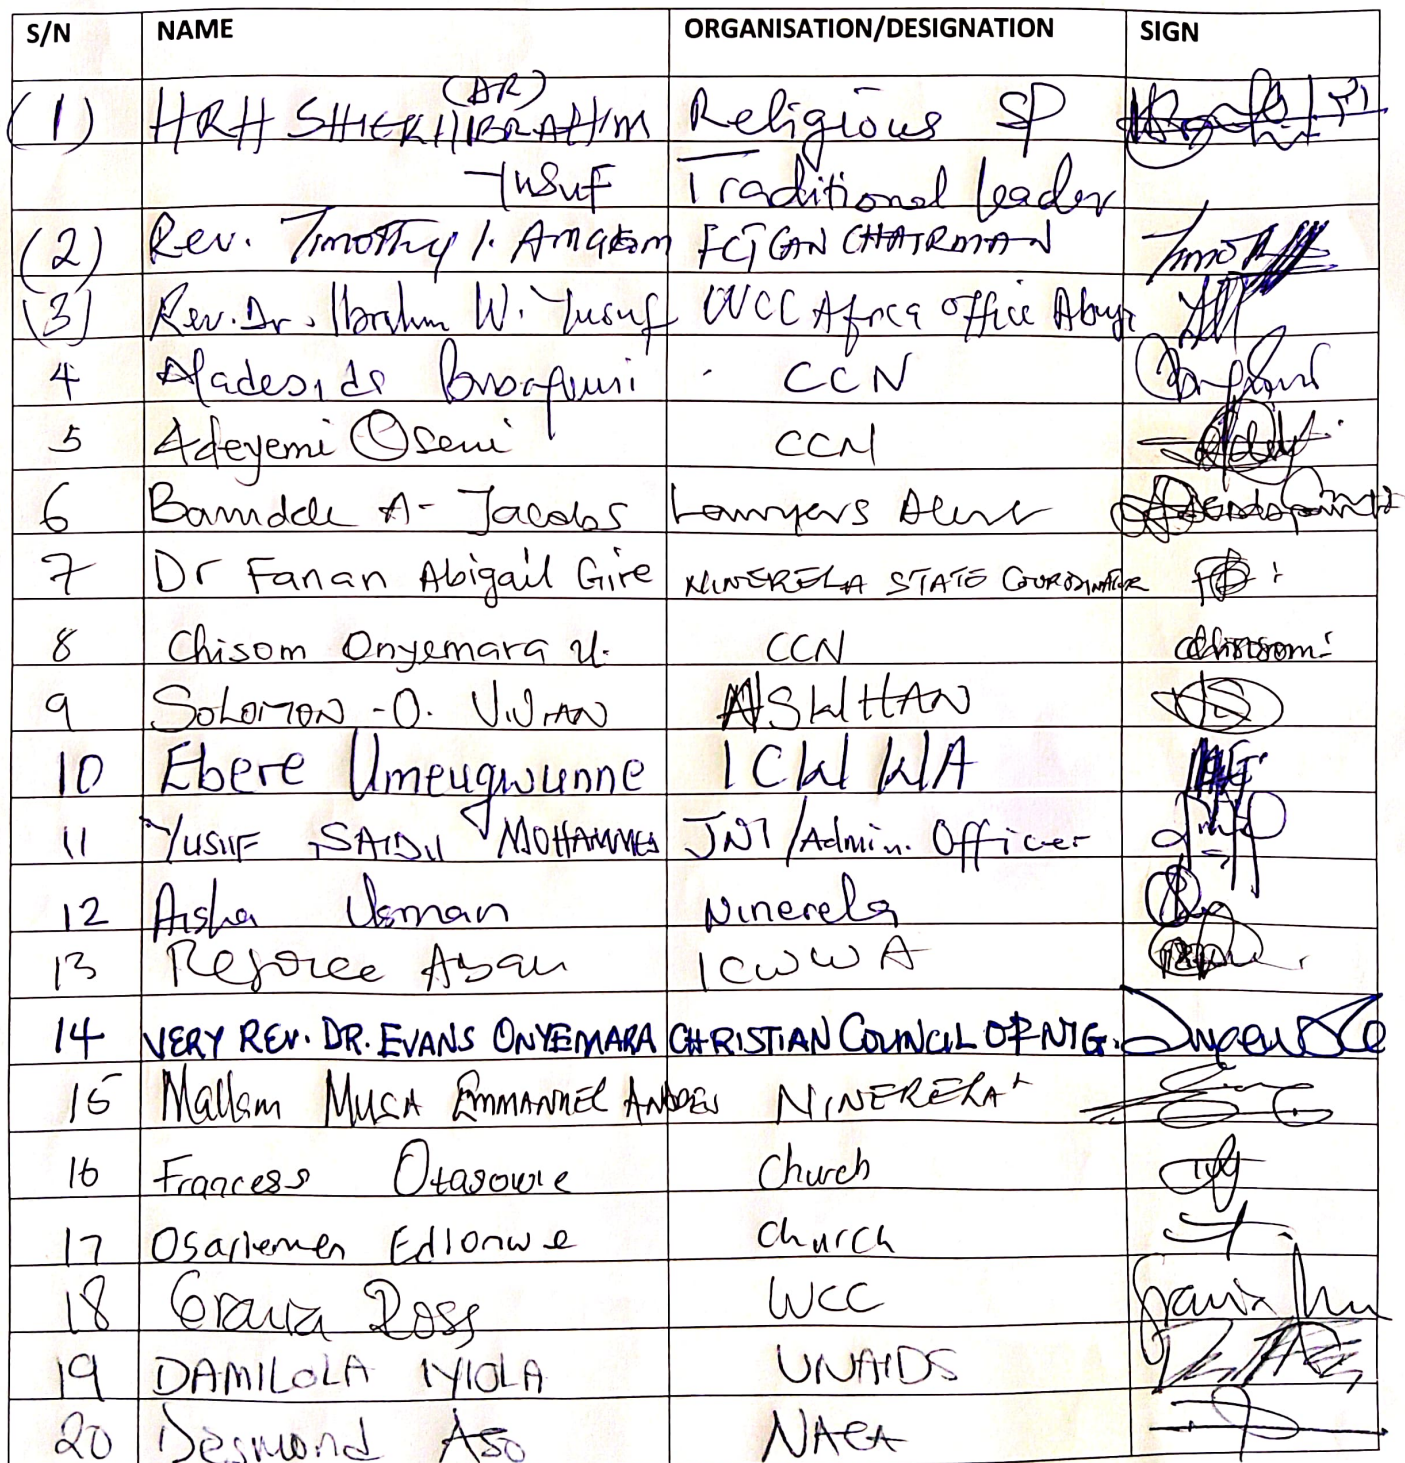 S/N NAME ORGANISATION/DESIGNATION SIGN
(AR)
(1) HRH SHIEKH IBRAHIM Religious SP
Yusuf Traditional leader
(2) Rev. Timothy I. FCT CAN CHAIRMAN Timothy
(3) Rev. Dr. Ibrahim W. Yusuf WCC Africa office Abuja
4 CCN
5 Adeyemi Oseni CCN
6 Bamidele A- Jacobs Lawyers Alert
7 Dr Fanan Abigail Gire NINERELA STATE COORDINATOR
8 Chisom Onyemara U. CCN
9 SOLOMON -O. VIVIAN ASWHAN
10 Ebere Umeugwunne ICW WA
11 YUSUF SAIDU MOHAMMED JNI/Admin. Officer
12 Aisha Usman Ninerela
13 Rejoice ICWWA
14 VERY REV. DR. EVANS ONYEMARA CHRISTIAN COUNCIL OF NIG.
15 Mallam MUSA EMMANUEL NINERELA+
16 Francess Otasowie Church
17 Osariemen Edionwe Church
18 Gracia Ross WCC
19 DAMILOLA IYIOLA UNAIDS
20 Desmond Aso NACA